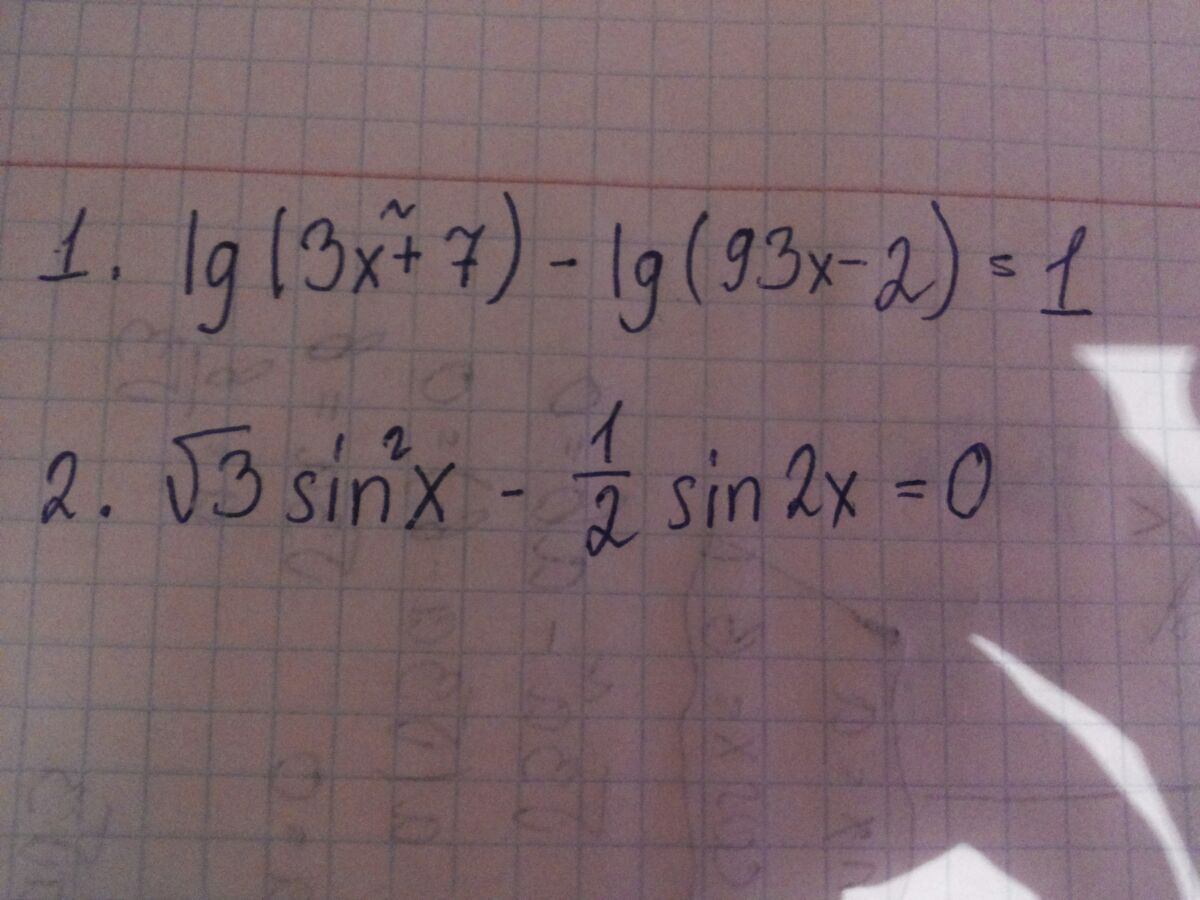 1. lg(3x²+7) - lg(93x-2) = 1
2. √3 sin²x - 1/2 sin 2x = 0